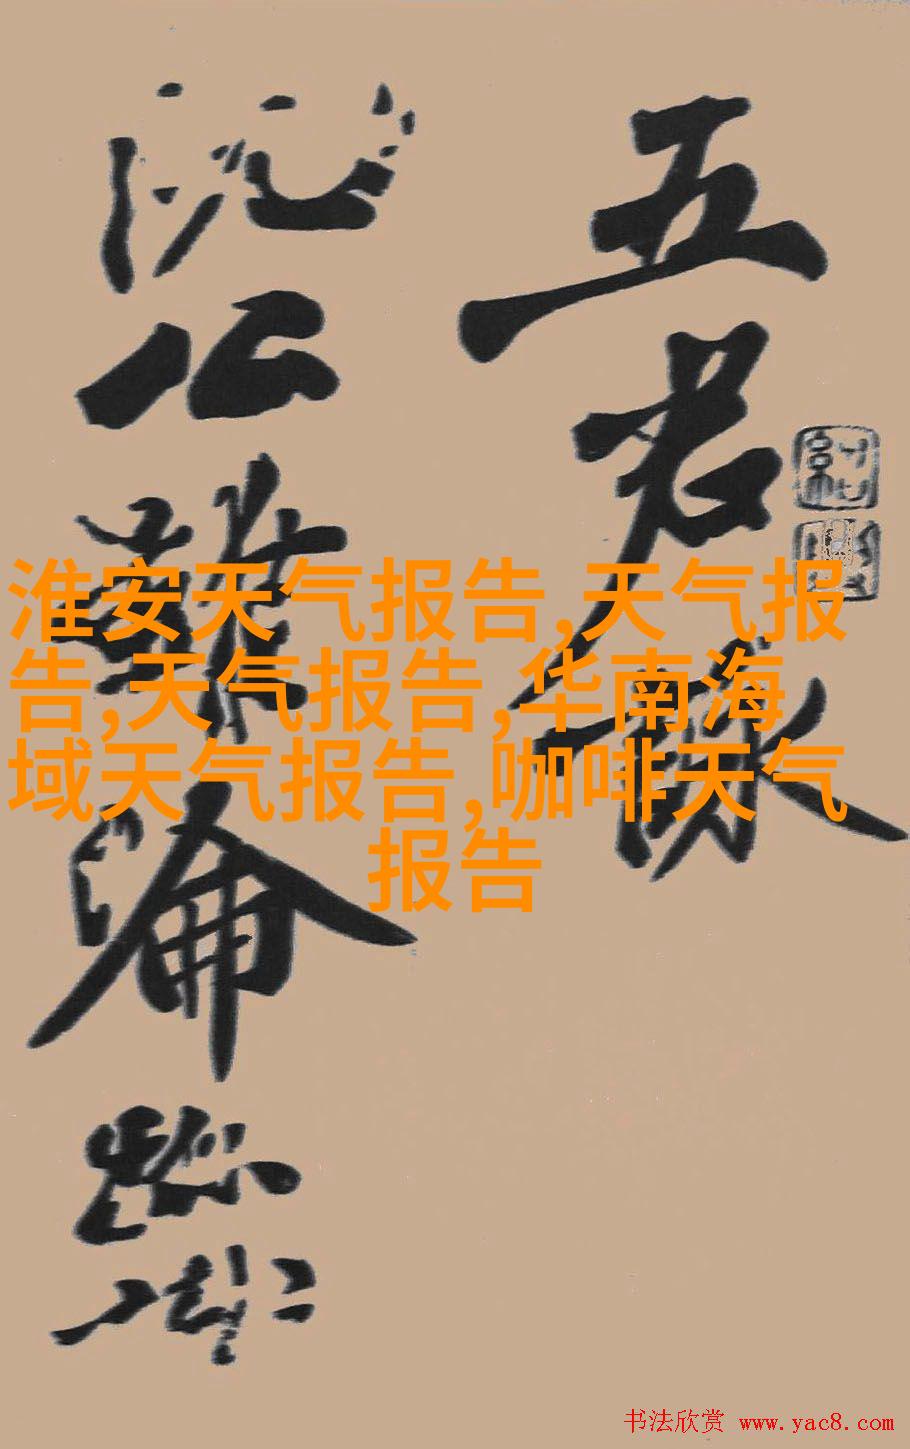 五君詠
阮公雖淪跡識
淮安天气报告,天气报
告,天气报告,华南海
域天气报告,咖啡天气
报告
书法欣赏 www.yac8.com